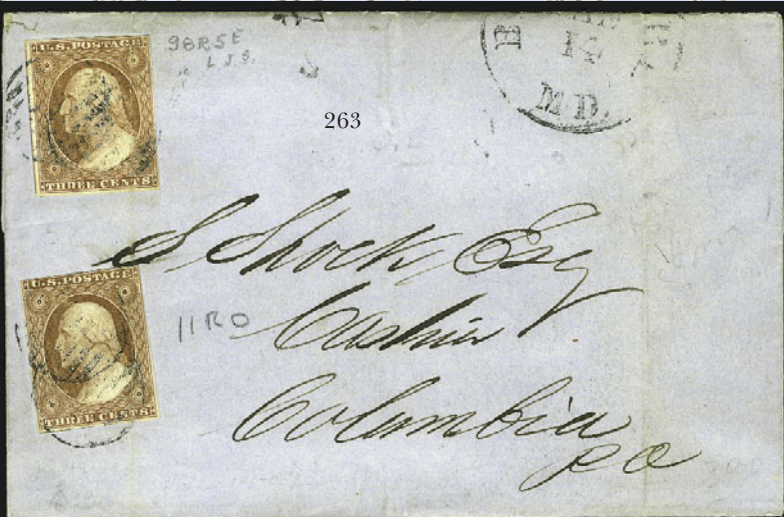 U.S. POSTAGE
THREE CENTS
98R5E
L S 8.
263
14
MD.
S Shock, Esq
Cashier
Columbia
pa
U.S. POSTAGE
THREE CENTS
11RO
300